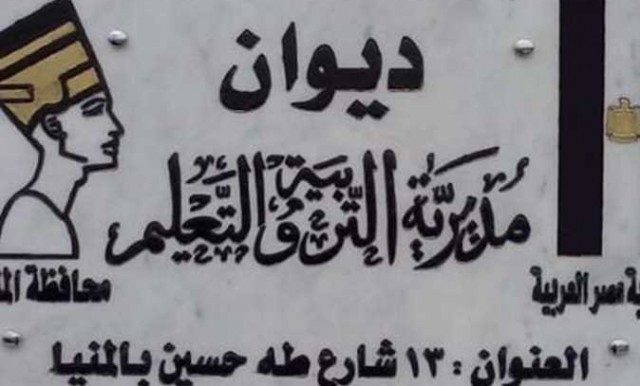 ديوان
مديرية التربية والتعليم
مصر العربية
محافظة
العنوان : ١٣ شارع طه حسين بالمنيا